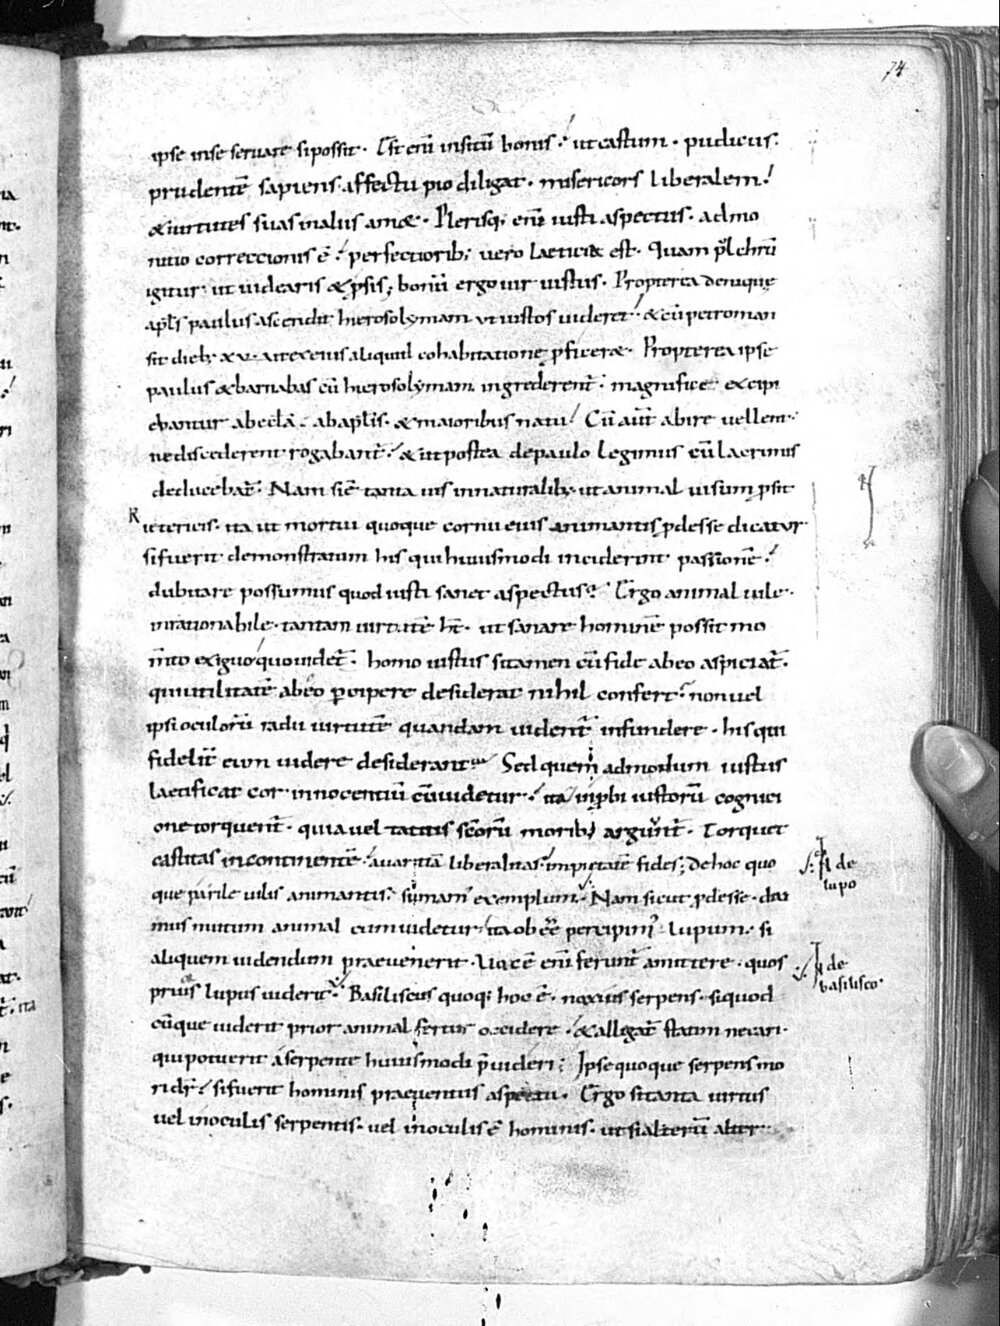 74
ipse inse seruare sipossit. Est eni͞ insitu͞ bonis: ut castum. pudicus.
prudente͞ sapiens. affectu pio diligat. misericors liberalem.
&uirtutes suas inalus am&. Plerisq; eni͞ iusti aspectus. admo
nitio correctionis e͞. perfectiorib; uero laeticia est. Quam pulchru͞
igitur. ut uidearis & psis; bonu͞ ergo uir iustus. Propterea denique
apl͞s paulus ascendit hierosolymam ut iustos uideret. & cu͞ petro man
sit dieb; xv. ut ex eius aliquid cohabitatione pficer&. Propterea ipse
paulus & barnabas cu͞ hierosolymam ingrederent͞. magnifice excipi
ebantur ab eccl͞a. ab apl͞is. & maioribus natu. Cu͞ aut͞ abire uellent.
ne discederent rogabant͞. & ut postea depaulo legimus cu͞ lacrimis
deducebat͞. Nam sic͞ tanta uis innaturalib; ut animal uisum psit
R ictericis. ita ut mortui quoque cornu eius animantis pdesse dicatur
sifuerit demonstratum his qui huiusmodi inciderint passione͞.
dubitare possumus quod iusti sanet aspectus? Ergo animal uile.
inrationabile. tantam uirtute͞ h͞t. ut sanare homine͞ possit mo
m͞to exiguo quo uidet͞. homo iustus sitamen cu͞ fide abeo aspiciat͞.
qui utilitate͞ abeo percipere desiderat nihil confert. non uel
ipsi oculoru͞ radii uirtute͞ quandam uident͞ infundere. his qui
fidelit͞ eum uidere desiderant. Sed quem admodum iustus
laetificat cor innocentiu͞ cu͞ uidetur. ita inpbi iustoru͞ cogniti
one torquent͞. quia uel tacitis sc͞oru͞ morib; arguunt͞. Torquet
castitas incontinente͞. auaritia͞ liberalitas. impietate͞ fides; De hoc quo
que parile uilis animantis. sumam exemplum. Nam sicut pdesse. dixi
mus mutum animal cum uidetur. ita ob e͞e͞ percipim᾽. lupum. si
aliquem uidendum praeuenerit. Uoce͞ eni͞ ferunt͞ amittere. quos
prius lupus uiderit. Basiliscus quoq; hoc e͞. noxius serpens. siquod
cu͞que uiderit prior animal fertur occidere. & allegat͞ statim necari.
qui potuerit a serpente huiusmodi p͞uideri; Ipse quoque serpens mo
ridr͞. sifuerit hominis praeuentus aspectu. Ergo si tanta uirtus
uel inoculis serpentis. uel inoculis e͞ hominis. ut si alteru͞ alter
de
lupo
de
basilisco.